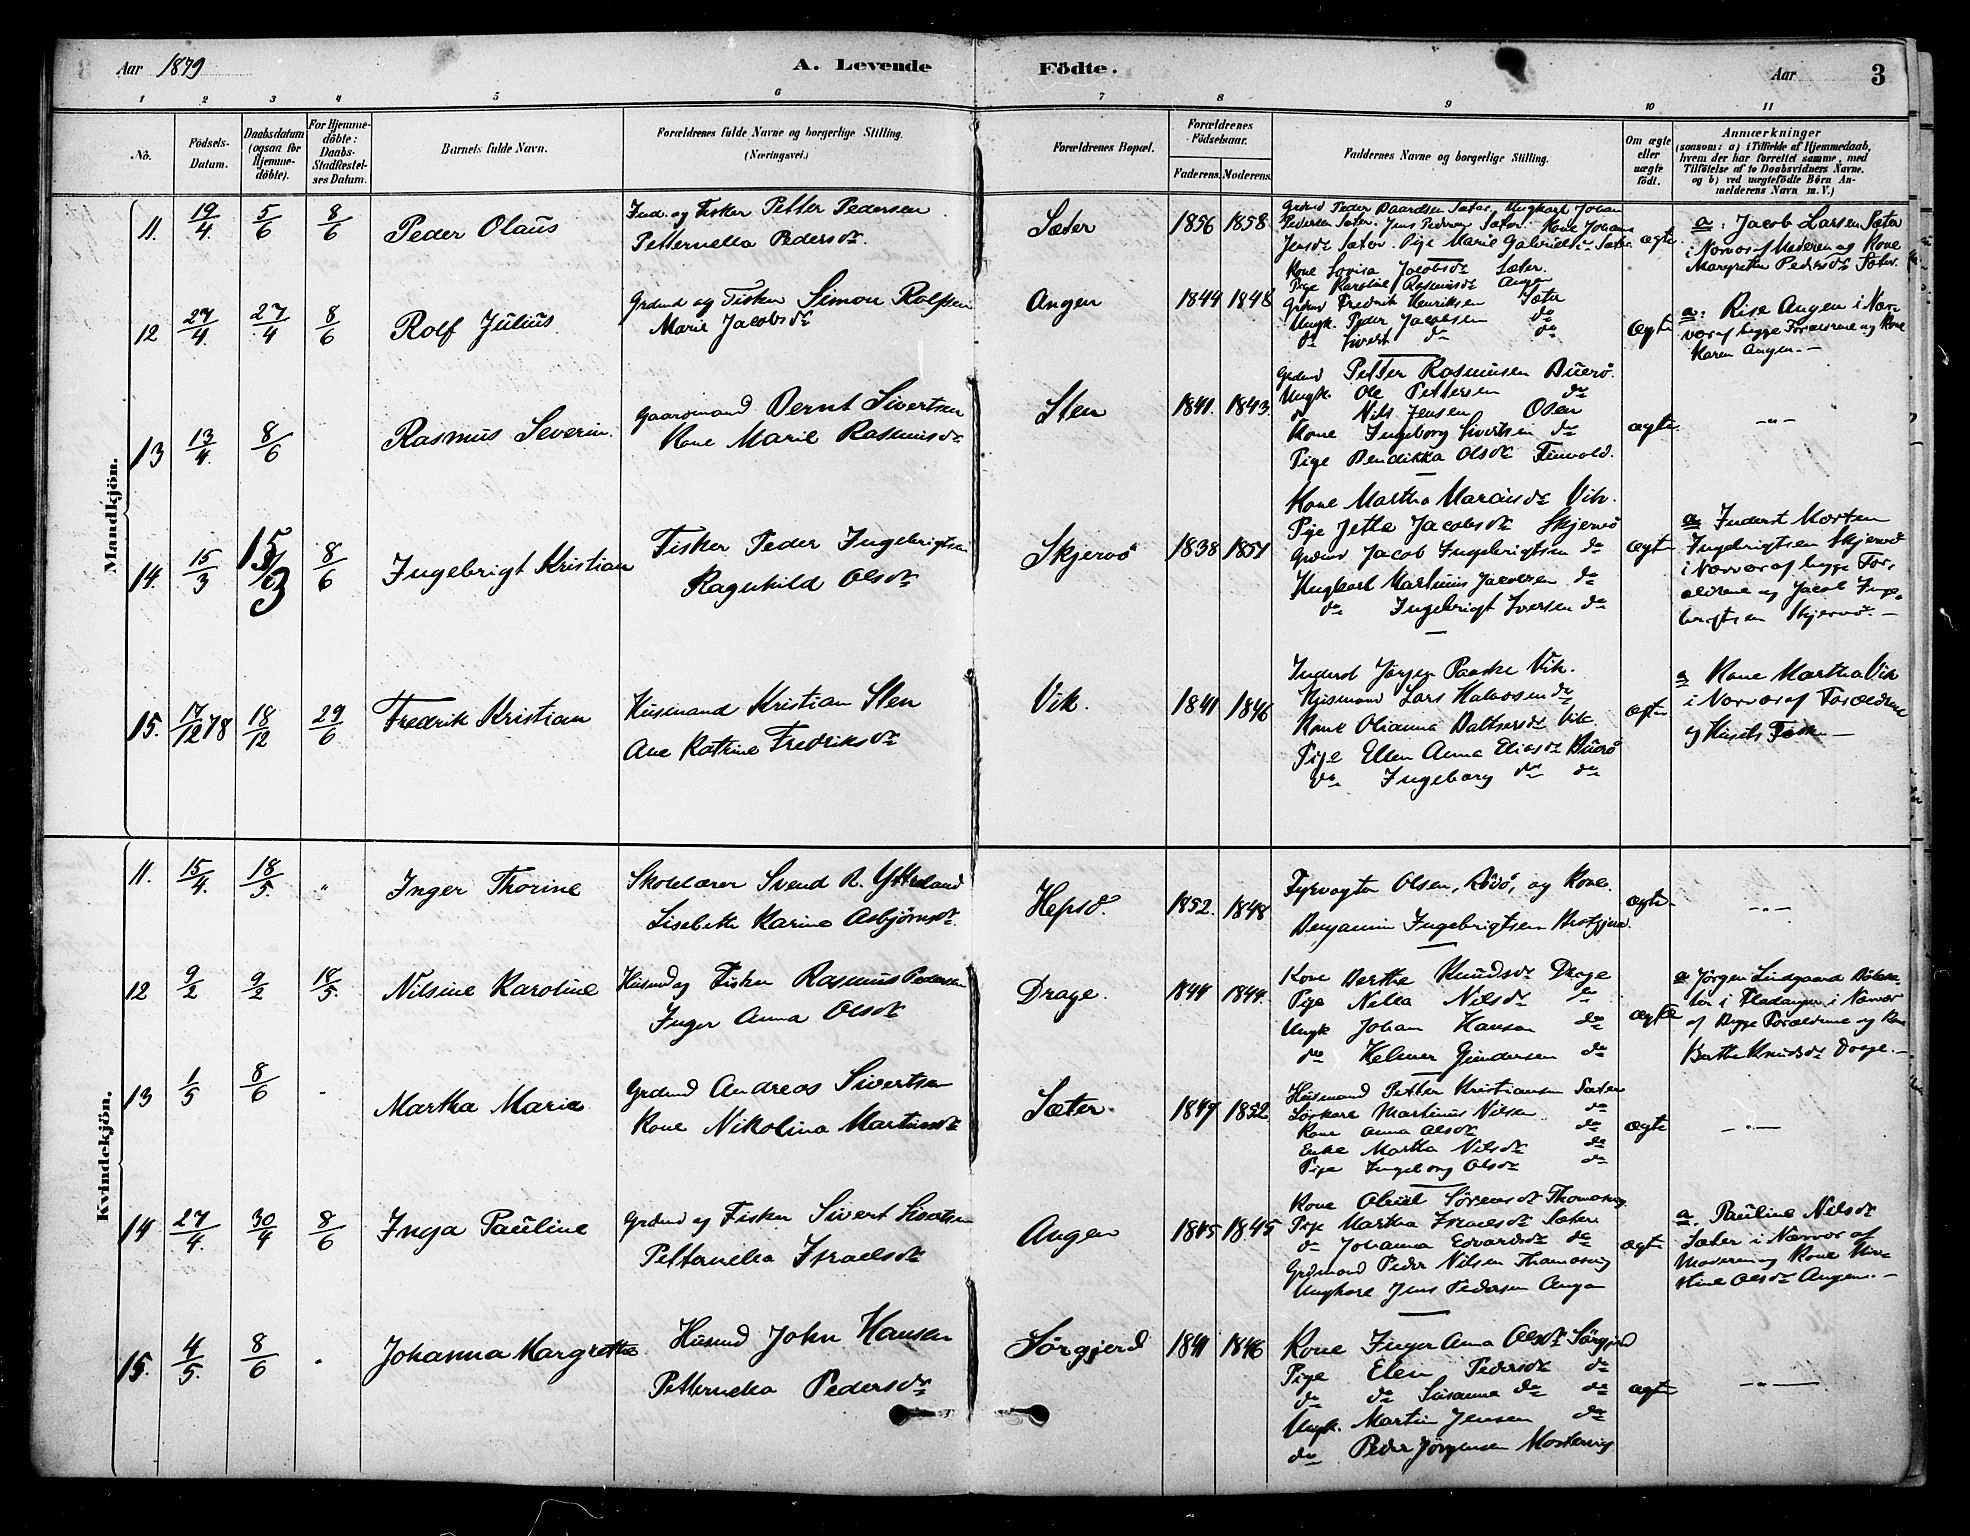 Aar 1879
A. Levende Födte.
Aar 3
1 2 3 4 5 6 7 8 9 10 11
No.
Födsels-Datum.
Daabsdatum (ogsaa for Hjemmedöbte).
For Hjemmedöbte: Daabs-Stadfæstelses Datum.
Barnets fulde Navn.
Forældrenes fulde Navne og borgerlige Stilling. (Næringsvei.)
Forældrenes Bopæl.
Forældrenes Födselsaar.
Faderens. Moderens.
Faddernes Navne og borgerlige Stilling.
Om ægte eller uægte födt.
Anmærkninger
(saasom: a) i Tilfælde af Hjemmedaab, hvem der har forrettet samme, med Tilföielse af to Daabsvidners Navne. og b) ved uægtefödte Börn Anmelderens Navn m. V.)
Mandkjön.
11. 19/4 5/6 8/6 Peder Olaus
Ind. og Fisker Petter Pedersen
Petternella Pedersdr
Sæter 1856 1858
Pedersen Sæter. Jens Pedersen Sæter. Kone Johanna
Jensdr Sæter. Pige Marie Gabrielsdr Sæter.
Kone Lovisa Jacobsdr Sæter.
ægte
a: Jacob Larsen Sæter
i Nærvær af Moderen og Kone
Margrethe Pedersdr Sæter.
12 27/4 27/4 8/6 Rolf Julius
Grdmd og Fisker Simon Rolfsen
Marie Jacobsdr
Angen 1844 1848
Pige Karoline Rasmusdr Angen
Grdmd Fredrik Henriksen Sæter
Ungk. Peder Jacobsen do
do Sivert do do
ægte
a: Rise Angen i Nær-
vær af begge Forældrene og Kone
Karen Angen. —
13 13/4 8/6 Rasmus Severin.
Gaardmand Bernt Sivertsen
Kone Marie Rasmusdr
Sten 1841. 1843.
Grdmd Petter Rasmusen Buerö.
Ungk. Ole Pettersen do
do Nils Jensen Osen
Kone Ingeborg Sivertsen do
Pige Bendikka Olsdr
ægte.
— " —
14. 15/3 15/3 8/6 Ingebrigt Kristian
Fisker Peder Ingebrigtsen
Ragnhild Olsdr
Skjervö 1838 1851
Kone Martha Mariusdr Vik.
Pige Jette Jacobsdr Skjervö
Grdmd Jacob Ingebrigtsen do
Ungkarl Martinus Jacobsen do
do Ingebrigt Iversen do
ægte
a: Inderst Morten
Ingebrigtsen Skjervö
i Nærvær af begge For-
ældrene og Jacob Inge-
brigtsen Skjervö. —
15. 17/12 78 18/12 29/6 Fredrik Kristian
Husmand Kristian Sten
Ane Katrine Fredriksdr
Vik. 1841 1846
Inderst Jörgen Paaske Vik.
Husmand Lars do
Kone Olianna Baltsersdr Vik.
Pige Ellen Anna Eliasdr Buerö
do Ingeborg do do
ægte
a Kone Martha Vik
i Nærvær af Forældrene
og Husets Folk —
Kvindekjön.
11. 15/4. 18/5 " Inger Thorine
Skolelærer Svend R. Ytreland
Lisebeth Karine Asbjörnsdr
Hepsö. 1852. 1848
Fyrvogter Olsen, og Kone.
Benjamin Ingebrigtsen
ægte
— " —
12 9/2 9/2 18/5. Nilsine Karoline
Husmd og Fisker Rasmus Pedersen
Inger Anna Olsdr
Drage. 1844 1844.
Kone Berthe Knudsdr Drage
Pige Nilla Nilsdr do
Ungk Johan Hansen do
do Helmer Gundersen do
ægte
a Jörgen Lindgaard
i Fladanger i Nærvær
af Begge Forældrene og Kone
Berthe Knudsdr Drage. —
13 1/5 8/6 - Martha Maria
Grdmd Andreas Sivertsen
Kone Nikolina Martinsdr
Sæter. 1847 1852
Husmand Petter Kristiansen Sæter
Martinus Nilsen do
Kone Anna Olsdr do
Enke Martha Nilsdr do
Pige Ingeborg Olsdr do
ægte
— " —
14 27/4. 30/4 8/6 Inga Pauline
Grdmd og Fisker Sivert Sivertsen
Petternella Israelsdr
Angen 1845 1845
Kone Sörensdr Thomasvig
Pige Martha Israelsdr Sæter
do Johanna Edvardsdr do
Grdmand Peder Nilsen Thomasvig
Ungkarl Jens Pedersen Angen
ægte
a. Pauline Nilsdr
Sæter i Nærvær af
Moderen og Kone
Olsdr Angen. —
15. 4/5. 8/6 . Johanna Margrethe
Husmd John Hansen
Petternella Pedersdr
Sörgjerd 1841 1846
Kone Inger Anna Olsdr Sörgjerd
Pige Elen Pedersdr do
do do Susanna do do
Ungk. Martin Jensen do
do Peder Jörgensen
ægte
— " —